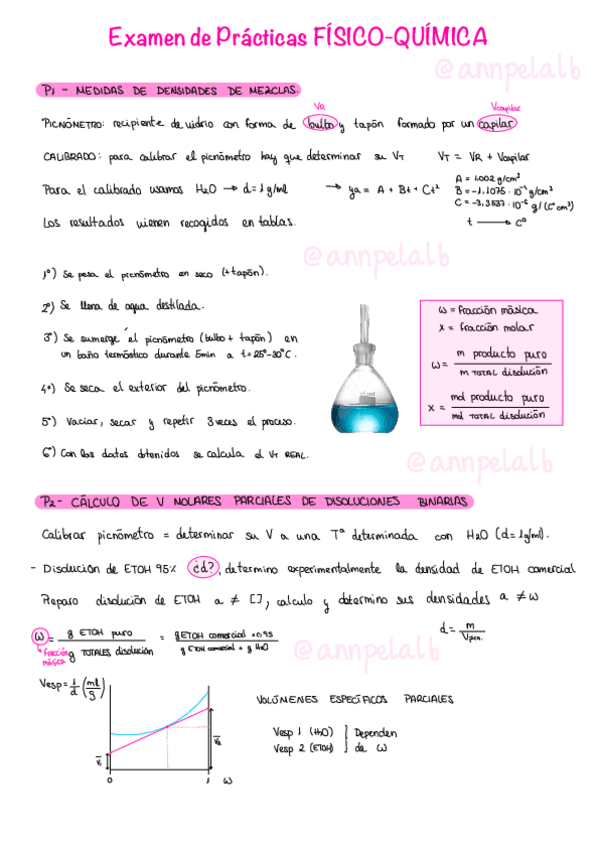 Examen de Prácticas FÍSICO-QUÍMICA
@annpelalb
P1 - MEDIDAS DE DENSIDADES DE MEZCLAS.
VR
Vcapilar
PICNÓMETRO: recipiente de vidrio con forma de bulbo y tapón formado por un capilar
CALIBRADO: para calibrar el picnómetro hay que determinar su VT VT = VR + Vcapilar
Para el calibrado usamos H2O → d=1g/ml → ya = A + Bt + Ct²
A = 1.002 g/cm³
B = -1,1075·10⁻⁴ g/cm³
C = -3,3537·10⁻⁶ g/(C² cm³)
t → Cº
Los resultados vienen recogidos en tablas.
@annpelalb
1º) Se pesa el picnómetro en seco (+tapón).
2º) Se llena de agua destilada.
3º) Se sumerge el picnómetro (bulbo + tapón) en
un baño termóstico durante 5min a t=25º-30ºC.
4º) Se seca el exterior del picnómetro.
5º) Vaciar, secar y repetir 3 veces el proceso.
6º) Con los datos obtenidos se calcula el VT REAL.
ω = fracción másica
x = fracción molar
ω = m producto puro / m TOTAL disolución
x = mol producto puro / mol TOTAL disolución
@annpelalb
P2 - CÁLCULO DE V MOLARES PARCIALES DE DISOLUCIONES BINARIAS
Calibrar picnómetro = determinar su V a una Tª determinada con H2O (d=1g/ml).
- Disolución de ETOH 95% ¿d?, determino experimentalmente la densidad de ETOH comercial
Preparo disolución de ETOH a ≠ [], calculo y determino sus densidades a ≠ ω
ω = g ETOH puro / g TOTALES disolución = g ETOH comercial · 0,95 / g ETOH comercial + g H2O
fracción másica
d = m / Vpicn.
@annpelalb
Vesp = 1/d (ml/g)
VOLÚMENES ESPECÍFICOS PARCIALES
Vesp 1 (H2O)
Vesp 2 (ETOH)
Dependen
de ω
V1
V2
0 1 ω